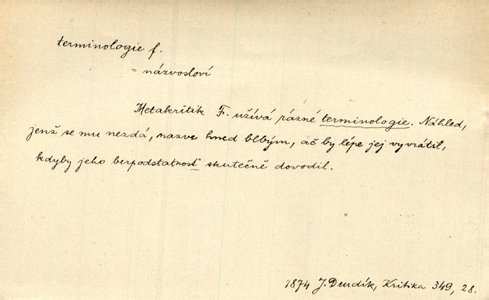 terminologie f.
= názvosloví
Metakritik F. užívá rázné terminologie. Náhled,
jenž se mu nezdá, nazve hned blbým, ač by lépe jej vyvrátil,
kdyby jeho bezpodstatnost skutečně dovodil.
1874 J. Durdík, Kritika 349, 28.